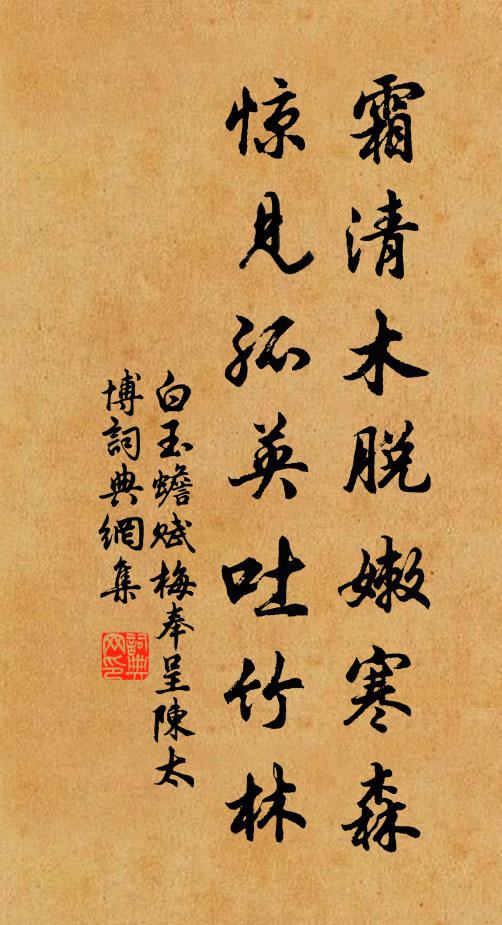 霜清木脱嫩寒森
惊见孤英吐竹林
白玉蟾赋梅奉呈陳太
博詞典網集
詞典网印